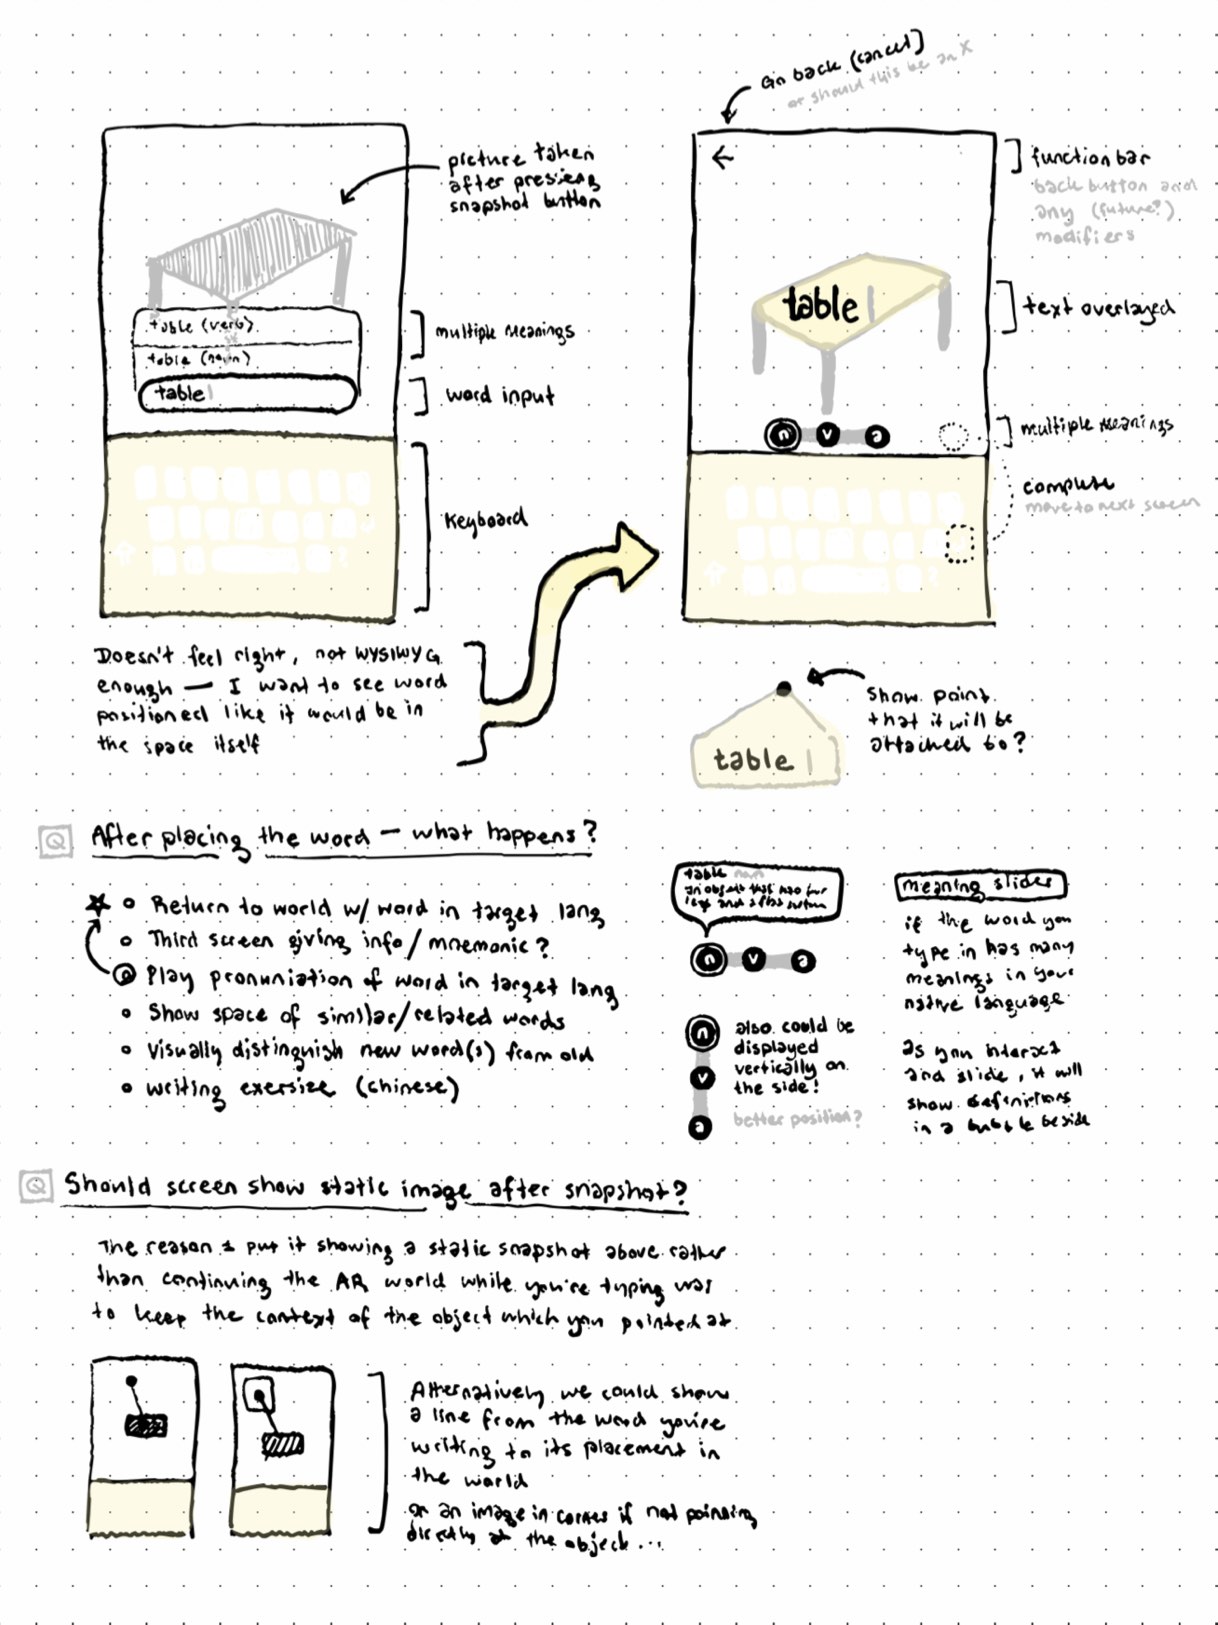 Go back (cancel)
or should this be an X
picture taken
after pressing
snapshot button
table (verb)
table (noun)
table
multiple meanings
word input
Keyboard
←
function bar
back button and
any (future?)
modifiers
table
text overlayed
n v a
multiple meanings
complete
move to next screen
Doesn't feel right, not WYSIWYG
enough — I want to see word
positioned like it would be in
the space itself
show point
that it will be
attached to?
table
Q After placing the word — what happens?
Return to world w/ word in target lang
Third screen giving info/mnemonic?
Play pronuniation of word in target lang
Show space of similar/related words
Visually distinguish new word(s) from old
writing exersize (chinese)
table noun
an object that has four
legs and a flat surface
n v a
n
v
a
also could be
displayed
vertically on
the side!
better position?
meaning slider
if the word you
type in has many
meanings in your
native language
as you interact
and slide, it will
show definitions
in a bubble beside
Q Should screen show static image after snapshot?
The reason I put it showing a static snapshot above rather
than continuing the AR world while you're typing was
to keep the context of the object which you pointed at
Alternatively we could show
a line from the word you're
writing to its placement in
the world
or an image in corner if not pointing
directly at the object...